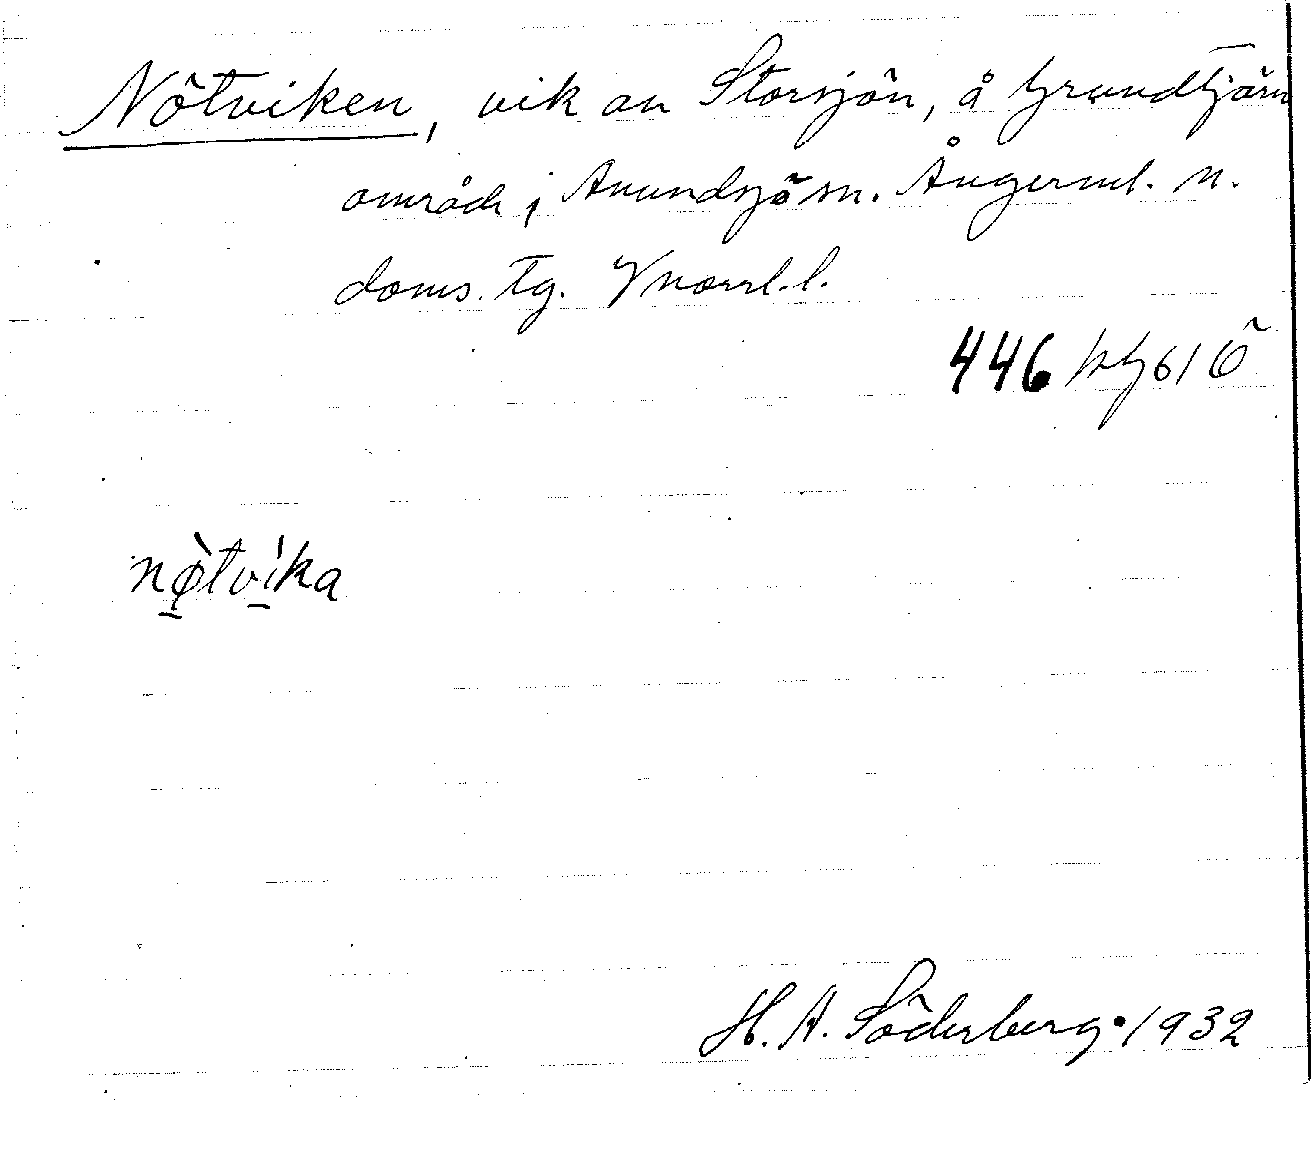 Nötviken, vik av Storsjön, å Grundtjärn
område i Anundsjö sn. Ångerml. n.
doms. tg. Vnorrl. l.
446 hg 61 Ö
nø̀tvíka
H. A. Söderberg. 1932